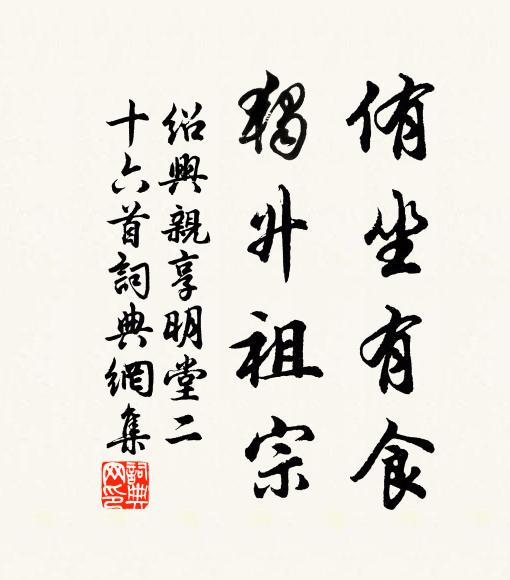 侑坐有食
升祖宗
紹興親享明堂二
十六首詞典網集
詞典
网印